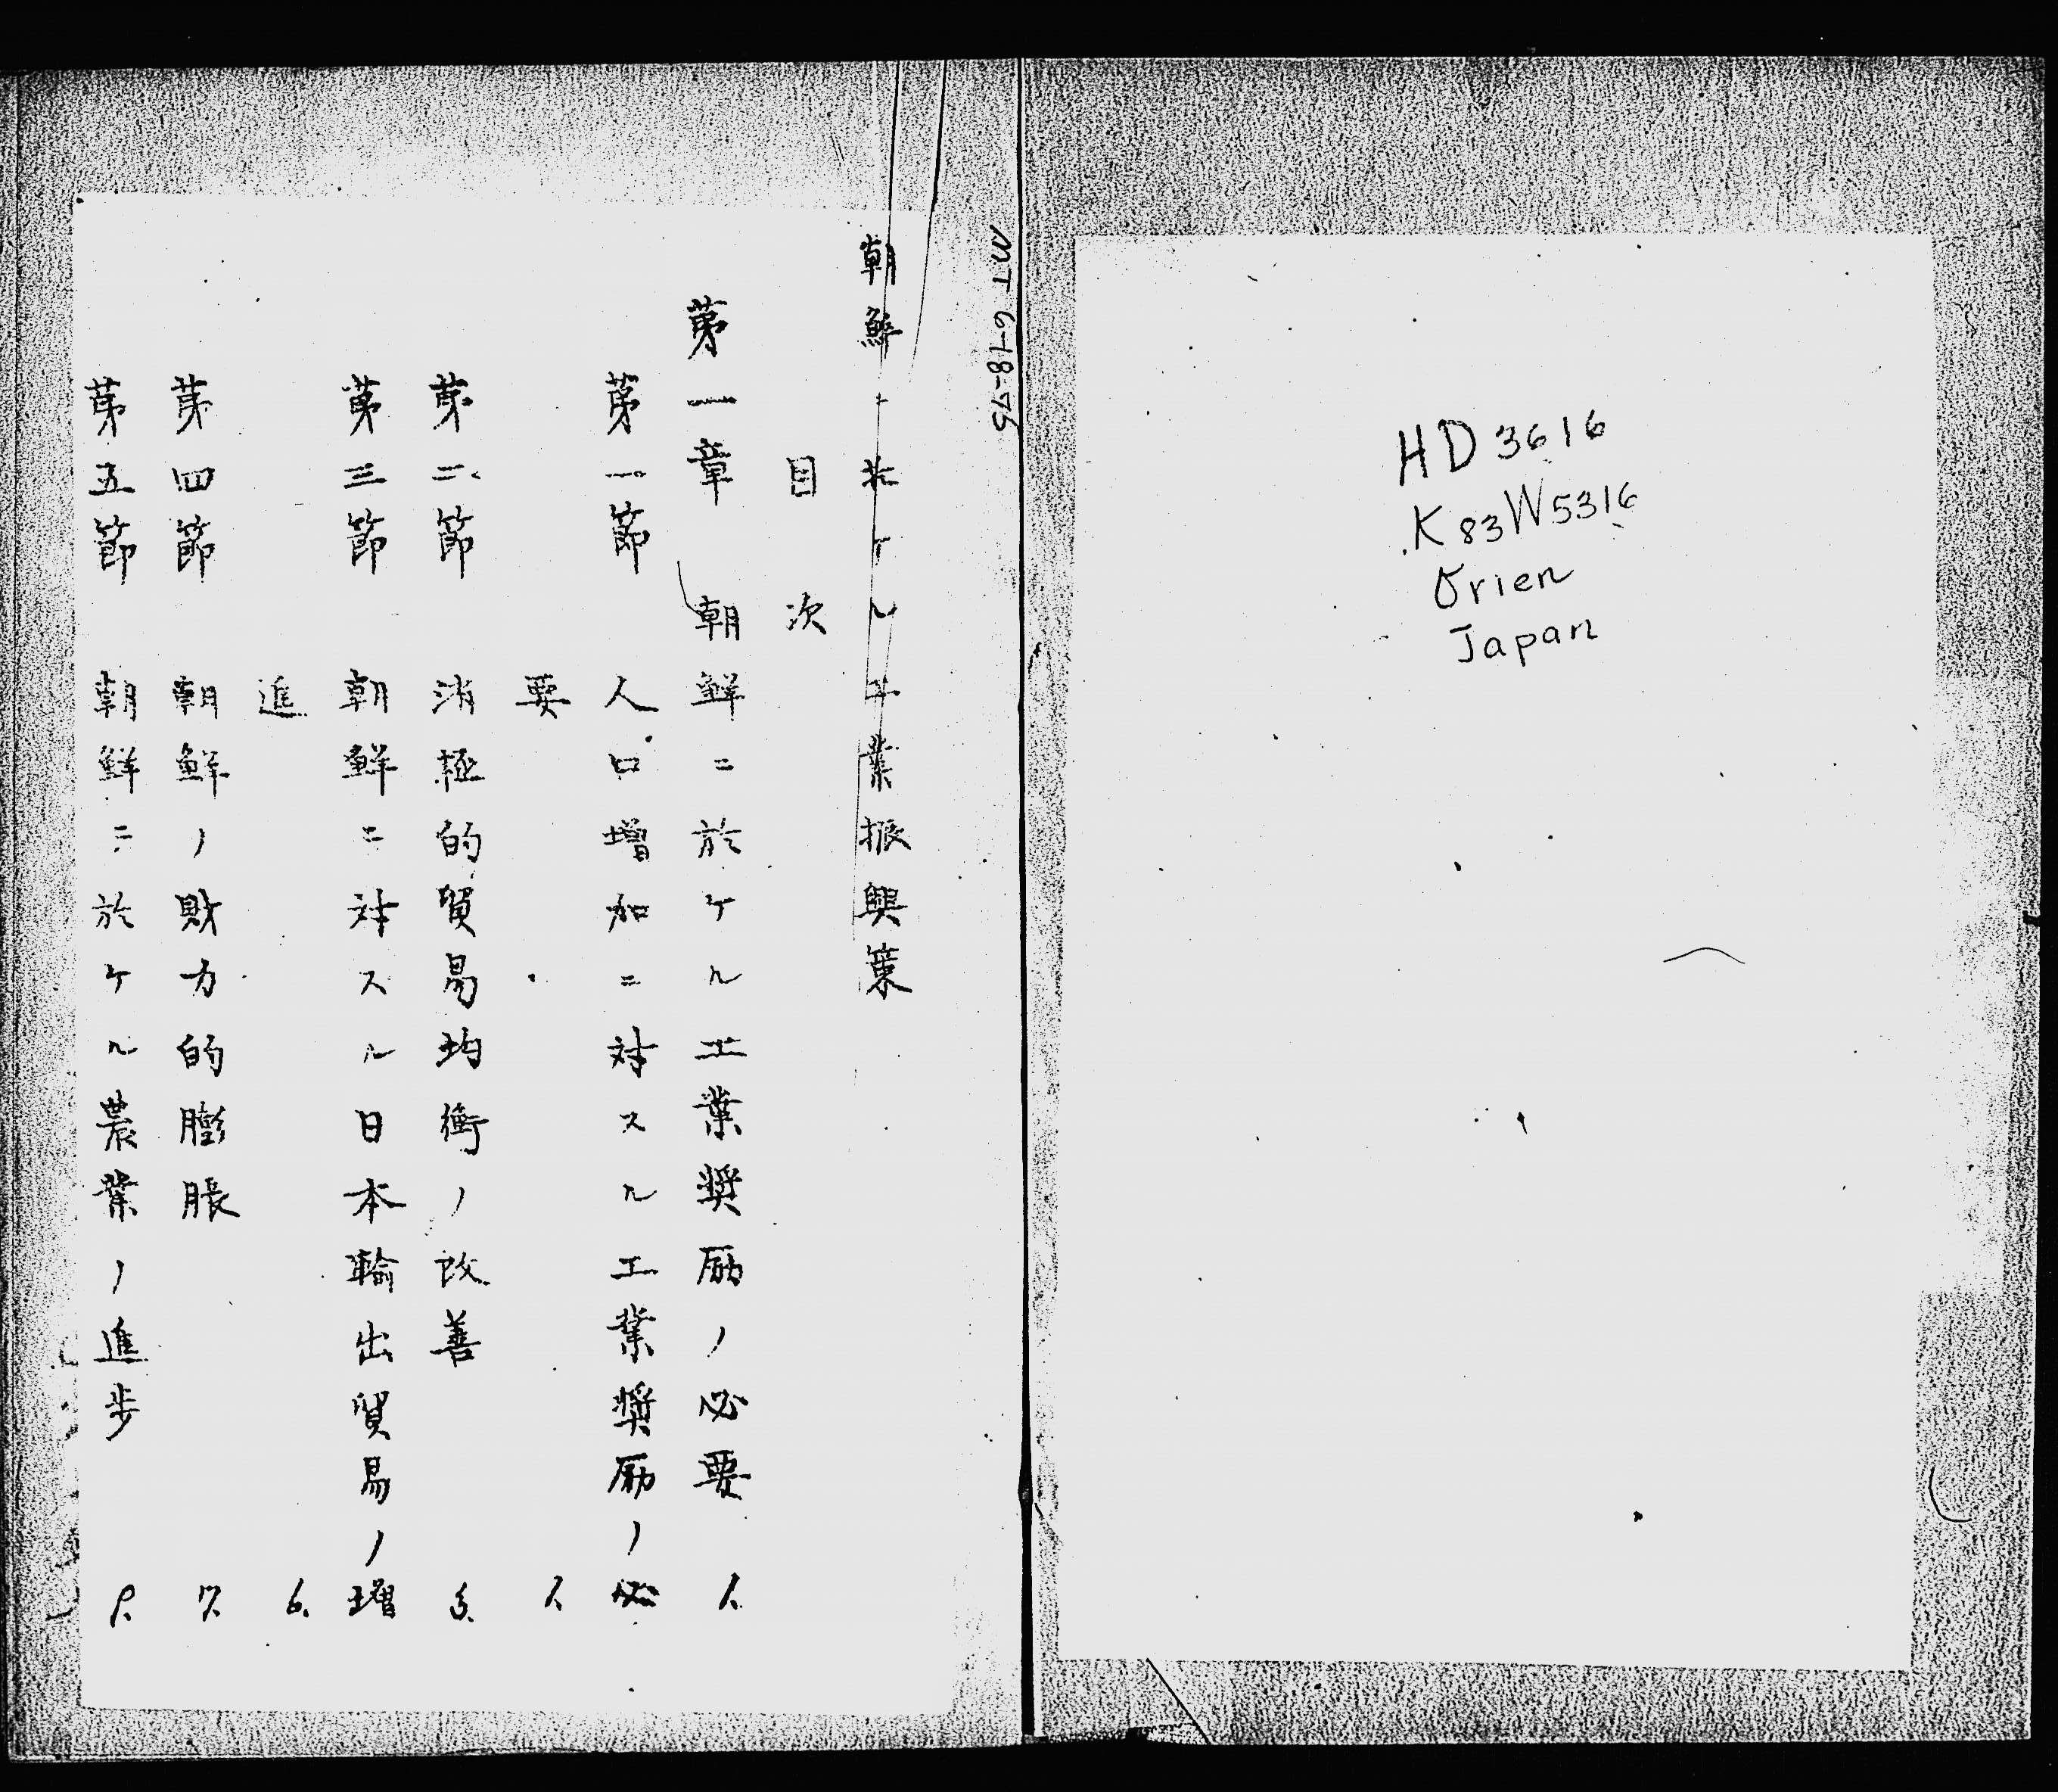 HD 3616
.K83W5316
Orien
Japan
MT 6-18-75
朝鮮ニ於ケル工業振興策
目次
第一章 朝鮮ニ於ケル工業奨励ノ必要 1.
第一節 人口増加ニ対スル工業奨励ノ必
要 1.
第二節 消極的貿易均衡ノ改善 3.
第三節 朝鮮ニ対スル日本輸出貿易ノ増
進 6.
第四節 朝鮮ノ財力的膨脹 7.
第五節 朝鮮ニ於ケル農業ノ進歩